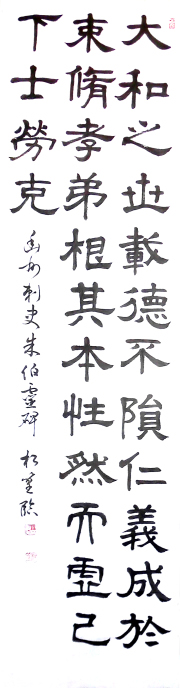 大和之世載德不隕仁義成於
束脩孝弟根其本性然而虛己
下士勞克
幽州刺史朱伯靈碑
臨